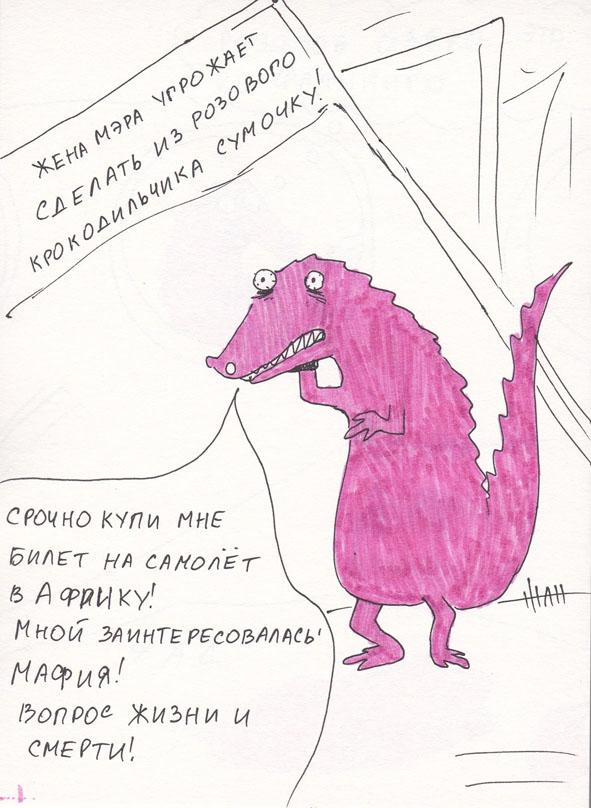 ЖЕНА МЭРА УГРОЖАЕТ
СДЕЛАТЬ ИЗ РОЗОВОГО
КРОКОДИЛЬЧИКА СУМОЧКУ!
СРОЧНО КУПИ МНЕ
БИЛЕТ НА САМОЛЁТ
В АФРИКУ!
МНОЙ ЗАИНТЕРЕСОВАЛАСЬ
МАФИЯ!
ВОПРОС ЖИЗНИ И
СМЕРТИ!